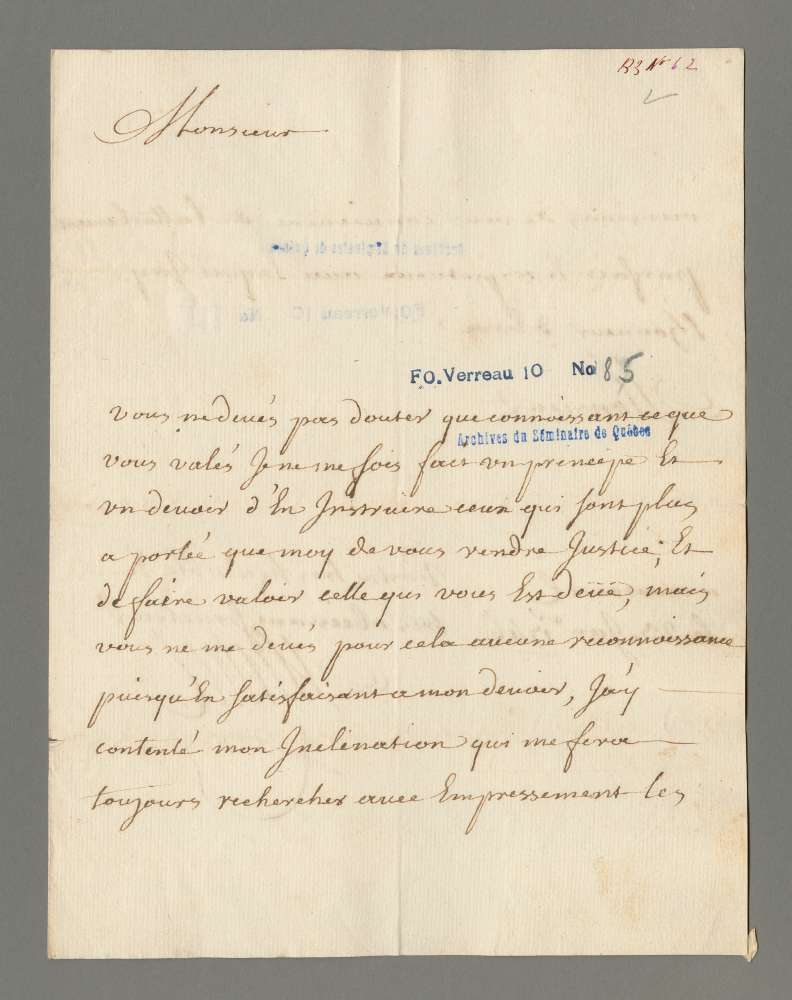 B3 No 62
Monsieur
FO. Verreau 10 No 85
vous ne devés pas douter que connoissant ce que
Archives du Séminaire de Québec
vous valés Je ne me sois fait vn principe Et
vn devoir d'En Instruire ceux qui sont plus
a portée que moy de vous rendre Justice, Et
de faire valoir celle qui vous Est deüe, mais
vous ne me devés pour cela aucune reconnoissance
puisqu'En satisfaisant a mon devoir, J'ay
contenté mon Inclination qui me fera
toujours rechercher avec Empressement les